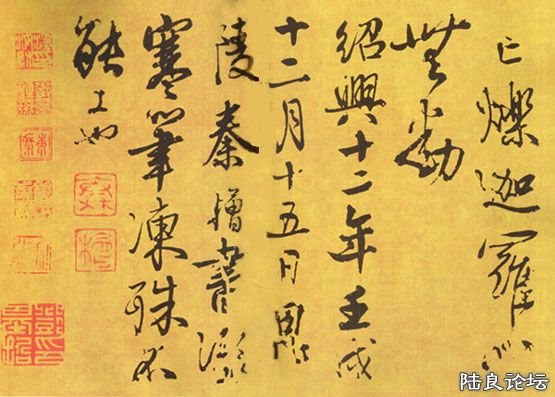 亡爍迦羅心
無動
紹興十二年壬戌
十二月十五日
陵秦檜書
寒筆凍殊不
能工也
陆良论坛